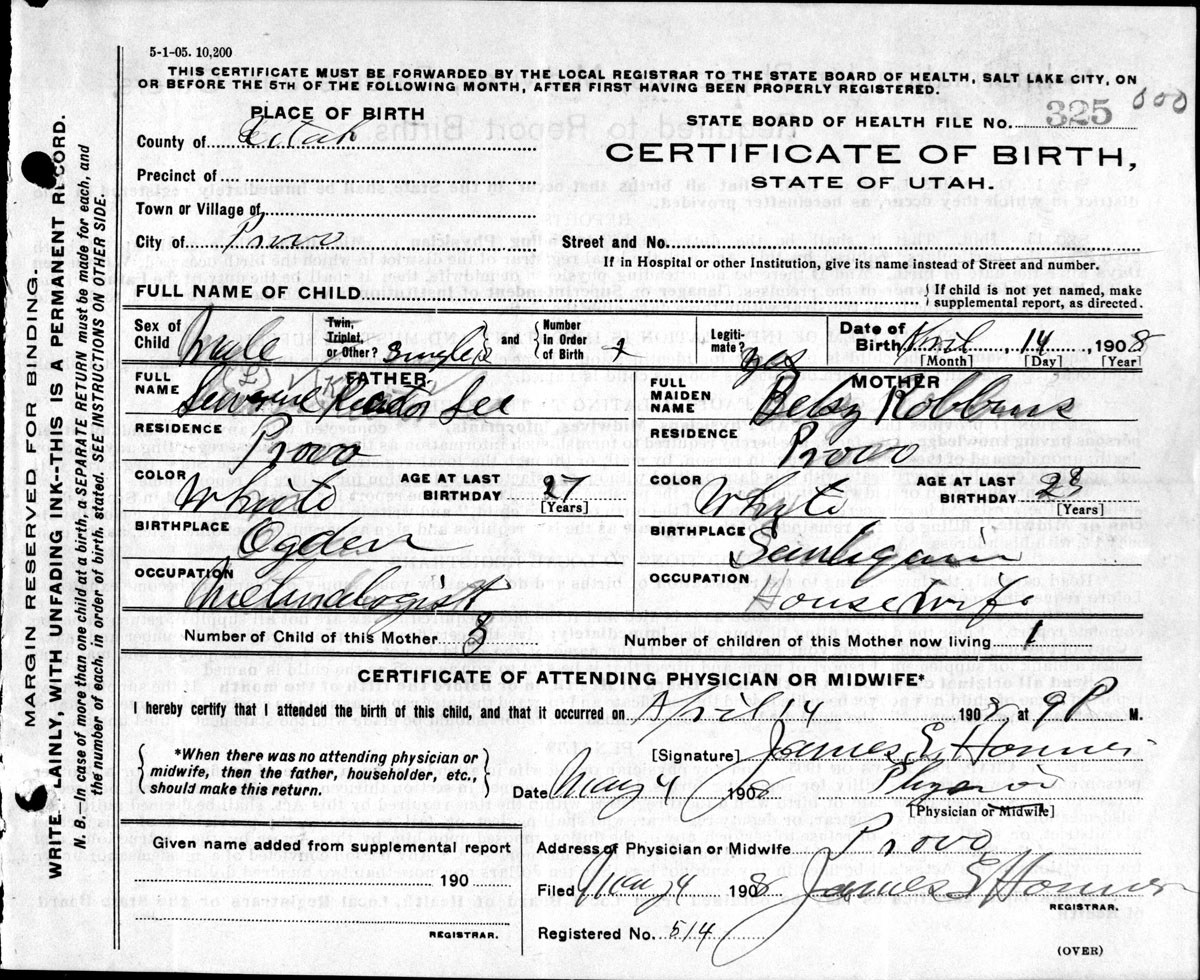 5-1-05. 10,200
THIS CERTIFICATE MUST BE FORWARDED BY THE LOCAL REGISTRAR TO THE STATE BOARD OF HEALTH, SALT LAKE CITY, ON
OR BEFORE THE 5TH OF THE FOLLOWING MONTH, AFTER FIRST HAVING BEEN PROPERLY REGISTERED.
PLACE OF BIRTH
STATE BOARD OF HEALTH FILE No. 325 000
County of Utah
CERTIFICATE OF BIRTH,
Precinct of
STATE OF UTAH.
Town or Village of
City of Provo
Street and No.
If in Hospital or other Institution, give its name instead of Street and number.
FULL NAME OF CHILD
If child is not yet named, make
supplemental report, as directed.
Sex of Child Male
Twin, Triplet, or Other? Single and Number In Order of Birth
Legitimate? yes
Date of Birth April 14, 1908
[Month] [Day] [Year]
FATHER
FULL NAME Lee
RESIDENCE Provo
COLOR White
AGE AT LAST BIRTHDAY 27
[Years]
BIRTHPLACE Ogden
OCCUPATION
MOTHER
FULL MAIDEN NAME Betsy Robbins
RESIDENCE Provo
COLOR White
AGE AT LAST BIRTHDAY 28
[Years]
BIRTHPLACE
OCCUPATION Housewife
Number of Child of this Mother 3
Number of children of this Mother now living 1
CERTIFICATE OF ATTENDING PHYSICIAN OR MIDWIFE*
I hereby certify that I attended the birth of this child, and that it occurred on April 14 1908 at 9 P M.
*When there was no attending physician or
midwife, then the father, householder, etc.,
should make this return.
[Signature] James E.
Date May 4 1908
[Physician or Midwife]
Given name added from supplemental report
190
REGISTRAR.
Address of Physician or Midwife Provo
Filed May 4 1908 James E.
REGISTRAR.
Registered No. 514
(OVER)
MARGIN RESERVED FOR BINDING.
WRITE AINLY, WITH UNFADING INK--THIS IS A PERMANENT RECORD.
N. B.--In case of more than one child at a birth, a SEPARATE RETURN must be made for each, and
the number of each, in order of birth, stated. SEE INSTRUCTIONS ON OTHER SIDE.